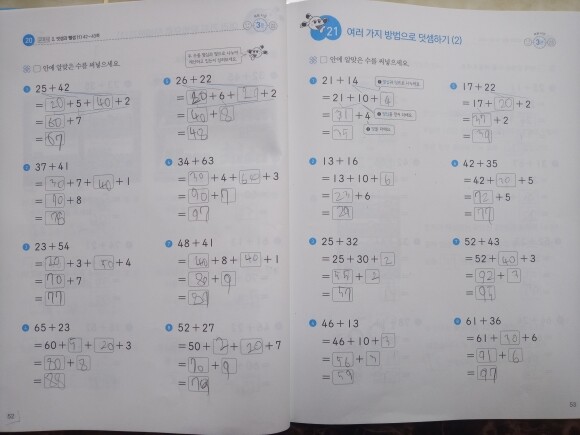 20
덧셈과 뺄셈
3
안에 알맞은 수를 써넣으세요.
25+42
=20+5+40+2
=60+7
=67
37+41
=30+7+40+1
=70+8
=78
23+54
=20+3+50+4
=70+7
=77
65+23
=60+5+20+3
=80+8
=88
26+22
=20+6+20+2
=40+8
=48
34+63
=30+4+60+3
=90+7
=97
48+41
=40+8+40+1
=80+9
=89
52+27
=50+2+20+7
=70+9
=79
52
21 여러 가지 방법으로 덧셈하기 (2)
3
안에 알맞은 수를 써넣으세요.
21+14
=21+10+4
=31+4
=35
13+16
=13+10+6
=23+6
=29
25+32
=25+30+2
=55+2
=57
46+13
=46+10+3
=56+3
=59
17+22
=17+20+2
=37+2
=39
42+35
=42+30+5
=72+5
=77
52+43
=52+40+3
=92+3
=95
61+36
=61+30+6
=91+6
=97
53